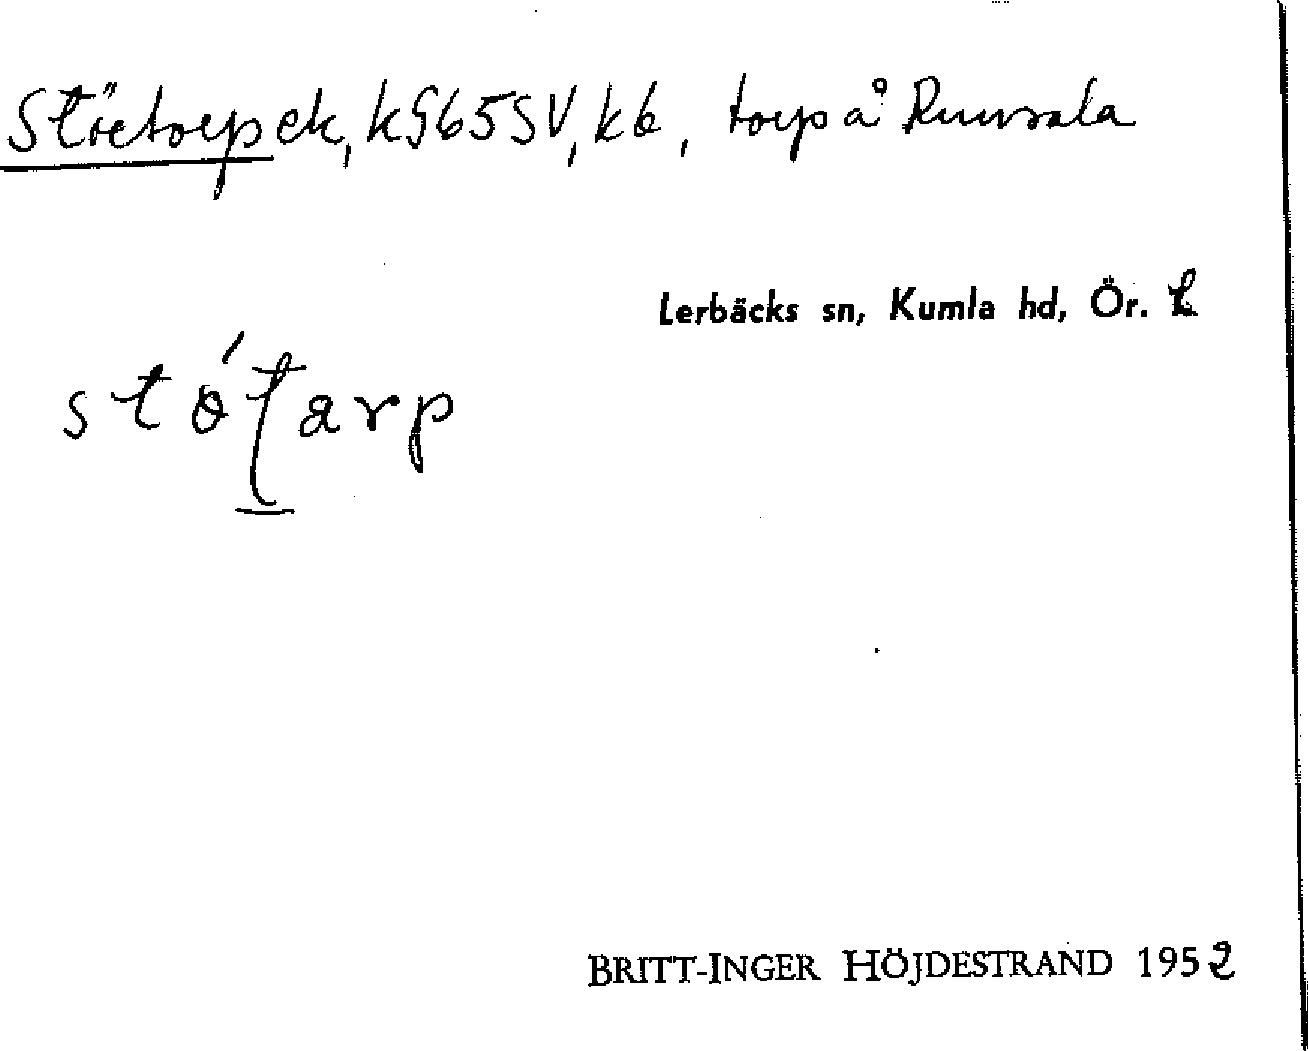 Störtorp ek, kS65SV, kb, torp å Runsala
Lerbäcks sn, Kumla hd, Ör. L
stǿʈarp
BRITT-INGER HÖJDESTRAND 1952